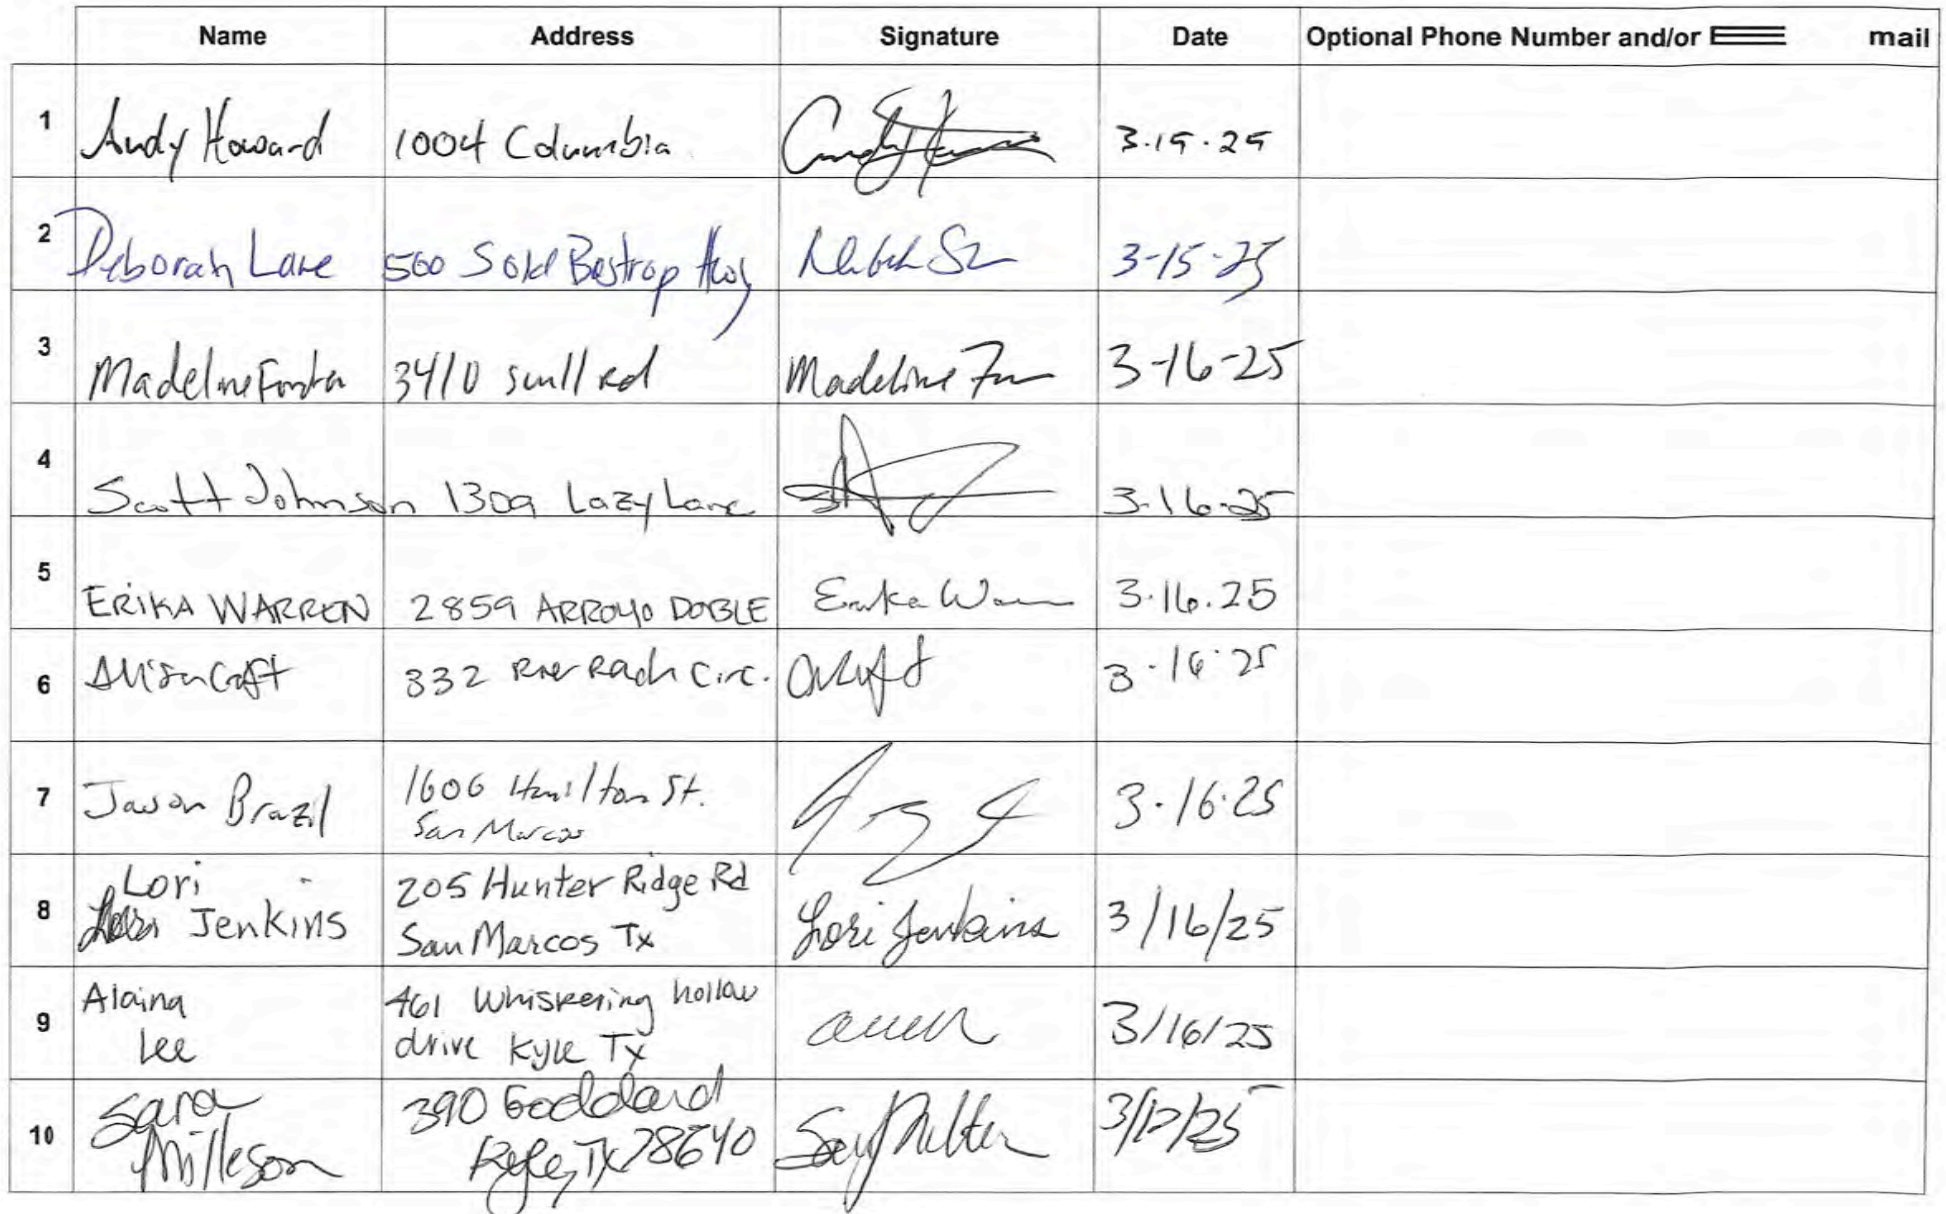 Name Address Signature Date Optional Phone Number and/or mail
1 Andy Howard 1004 Columbia 3.15.25
2 Deborah Lane 500 S Old Bastrop Hwy 3-15-25
3 Madeline 3410 Rd Madeline 3-16-25
4 Scott Johnson 1309 Lazy Lane 3-16-25
5 ERIKA WARREN 2859 ARROYO DOBLE Erika 3.16.25
6 332 Circ. 3.16.25
7 Jason Brazil 1606 Hamilton St. 3.16.25
San Marcos
8 Lori 205 Hunter Ridge Rd
Jenkins San Marcos Tx Lori Jenkins 3/16/25
9 Alaina 461 Whispering hollow
Lee drive Kyle Tx 3/16/25
10 Sara 390 Goddard
Milleson Kyle, TX 78640